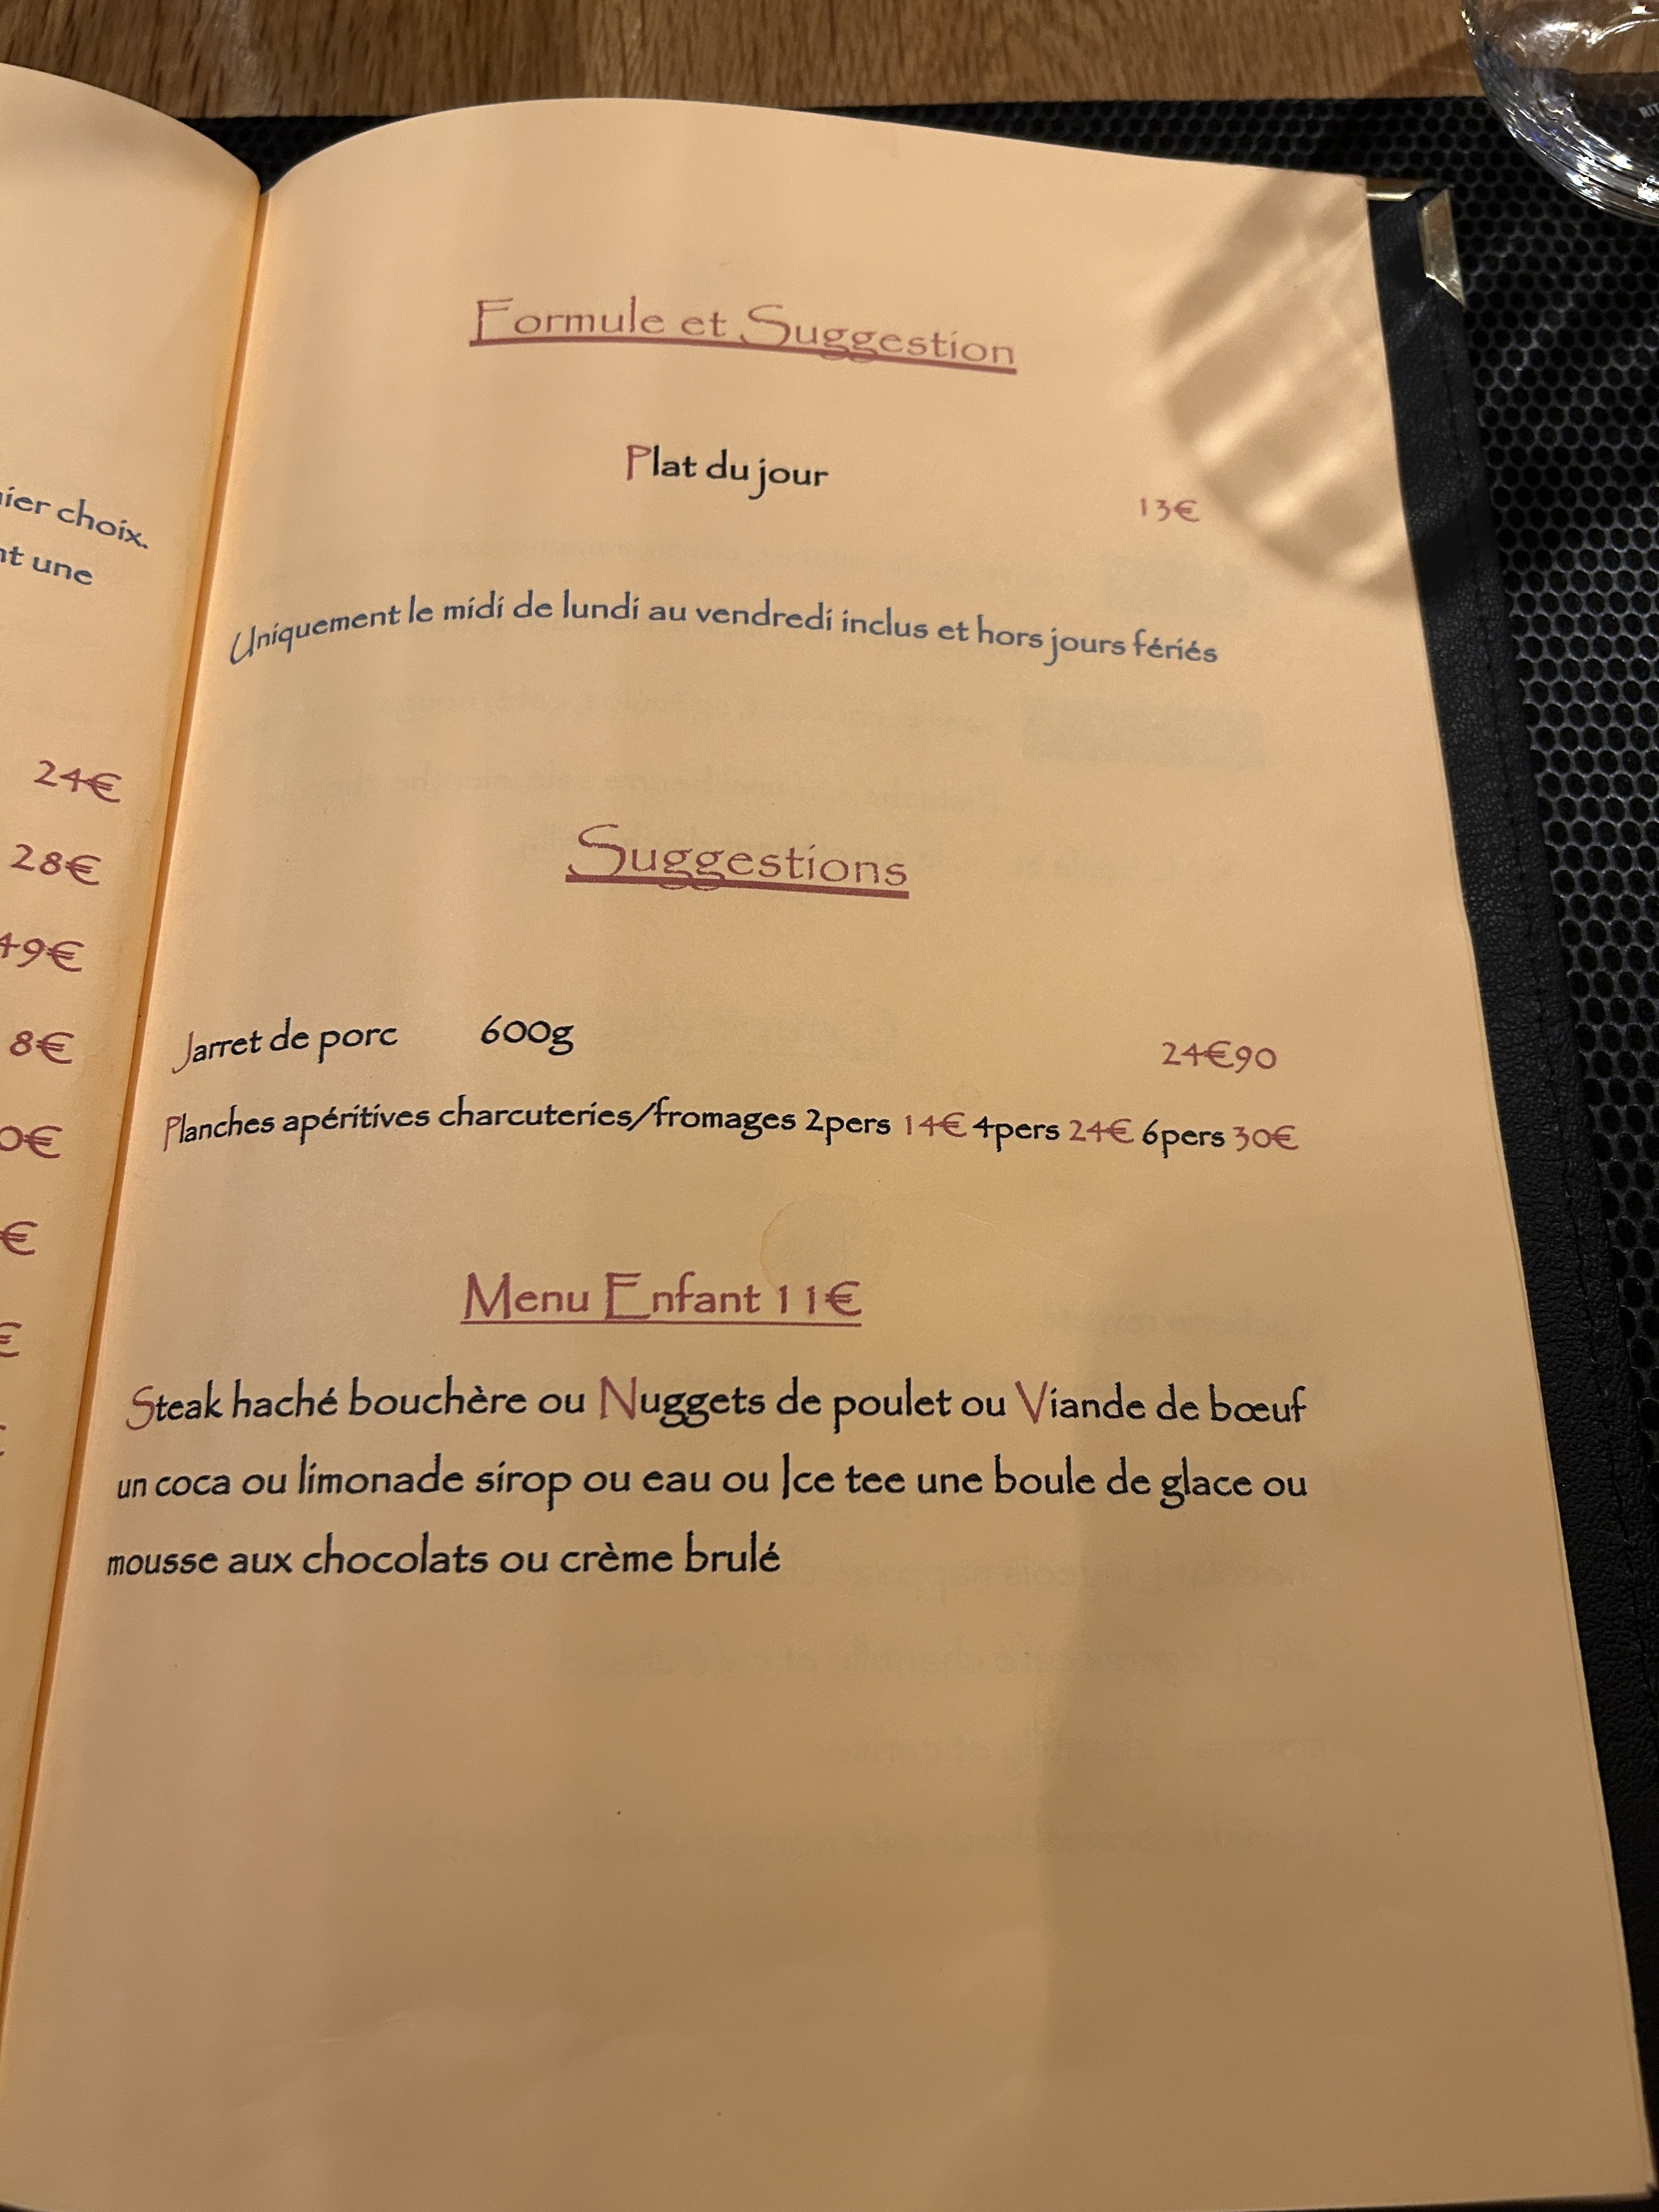 choix.
une
24€
28€
8€
Formule et Suggestion
Plat du jour
13€
Uniquement le midi de lundi au vendredi inclus et hors jours fériés
Suggestions
Jarret de porc 600g 24€90
Planches apéritives charcuteries/fromages 2pers 14€ 4pers 24€ 6pers 30€
Menu Enfant 11€
Steak haché bouchère ou Nuggets de poulet ou Viande de bœuf
un coca ou limonade sirop ou eau ou Ice tee une boule de glace ou
mousse aux chocolats ou crème brulé